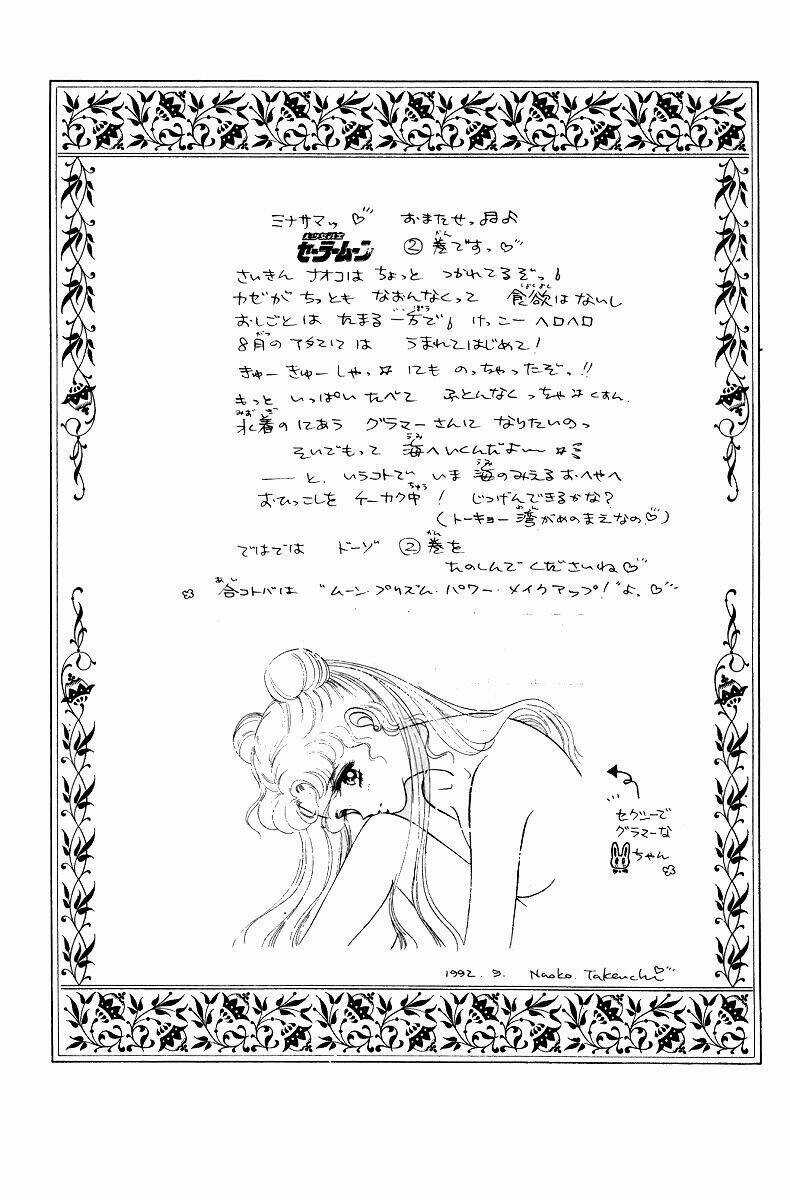 ミナサマっ♡ おまたせっ♬♪
美少女戦士セーラームーン ②巻ですっ♡
さいきん ナオコは ちょっと つかれてるぞっ!
カゼが ちっとも なおんなくって 食欲はないし
おしごとは たまる一方で! けっこー ヘロヘロ
8月のアタマには うまれてはじめて!
きゅーきゅーしゃっ にも のっちゃったぞっ!!
もっと いっぱい たべて ふとんなくっちゃ くすん.
水着のにあう グラマーさんに なりたいのっ
そいでもって 海へいくんだよ〜
――と、いうコトで いま 海のみえるおへやへ
おひっこしを ケーカク中! じつげんできるかな?
(トーキョー湾がめのまえなの♡)
ではでは ドーゾ ②巻を
たのしんで くださいね♡
合コトバは “ムーン・プリズム・パワー・メイクアップ!”よ.♡
セクシーで
グラマーな
ちゃん
1992.9. Naoko.Takeuchi♡